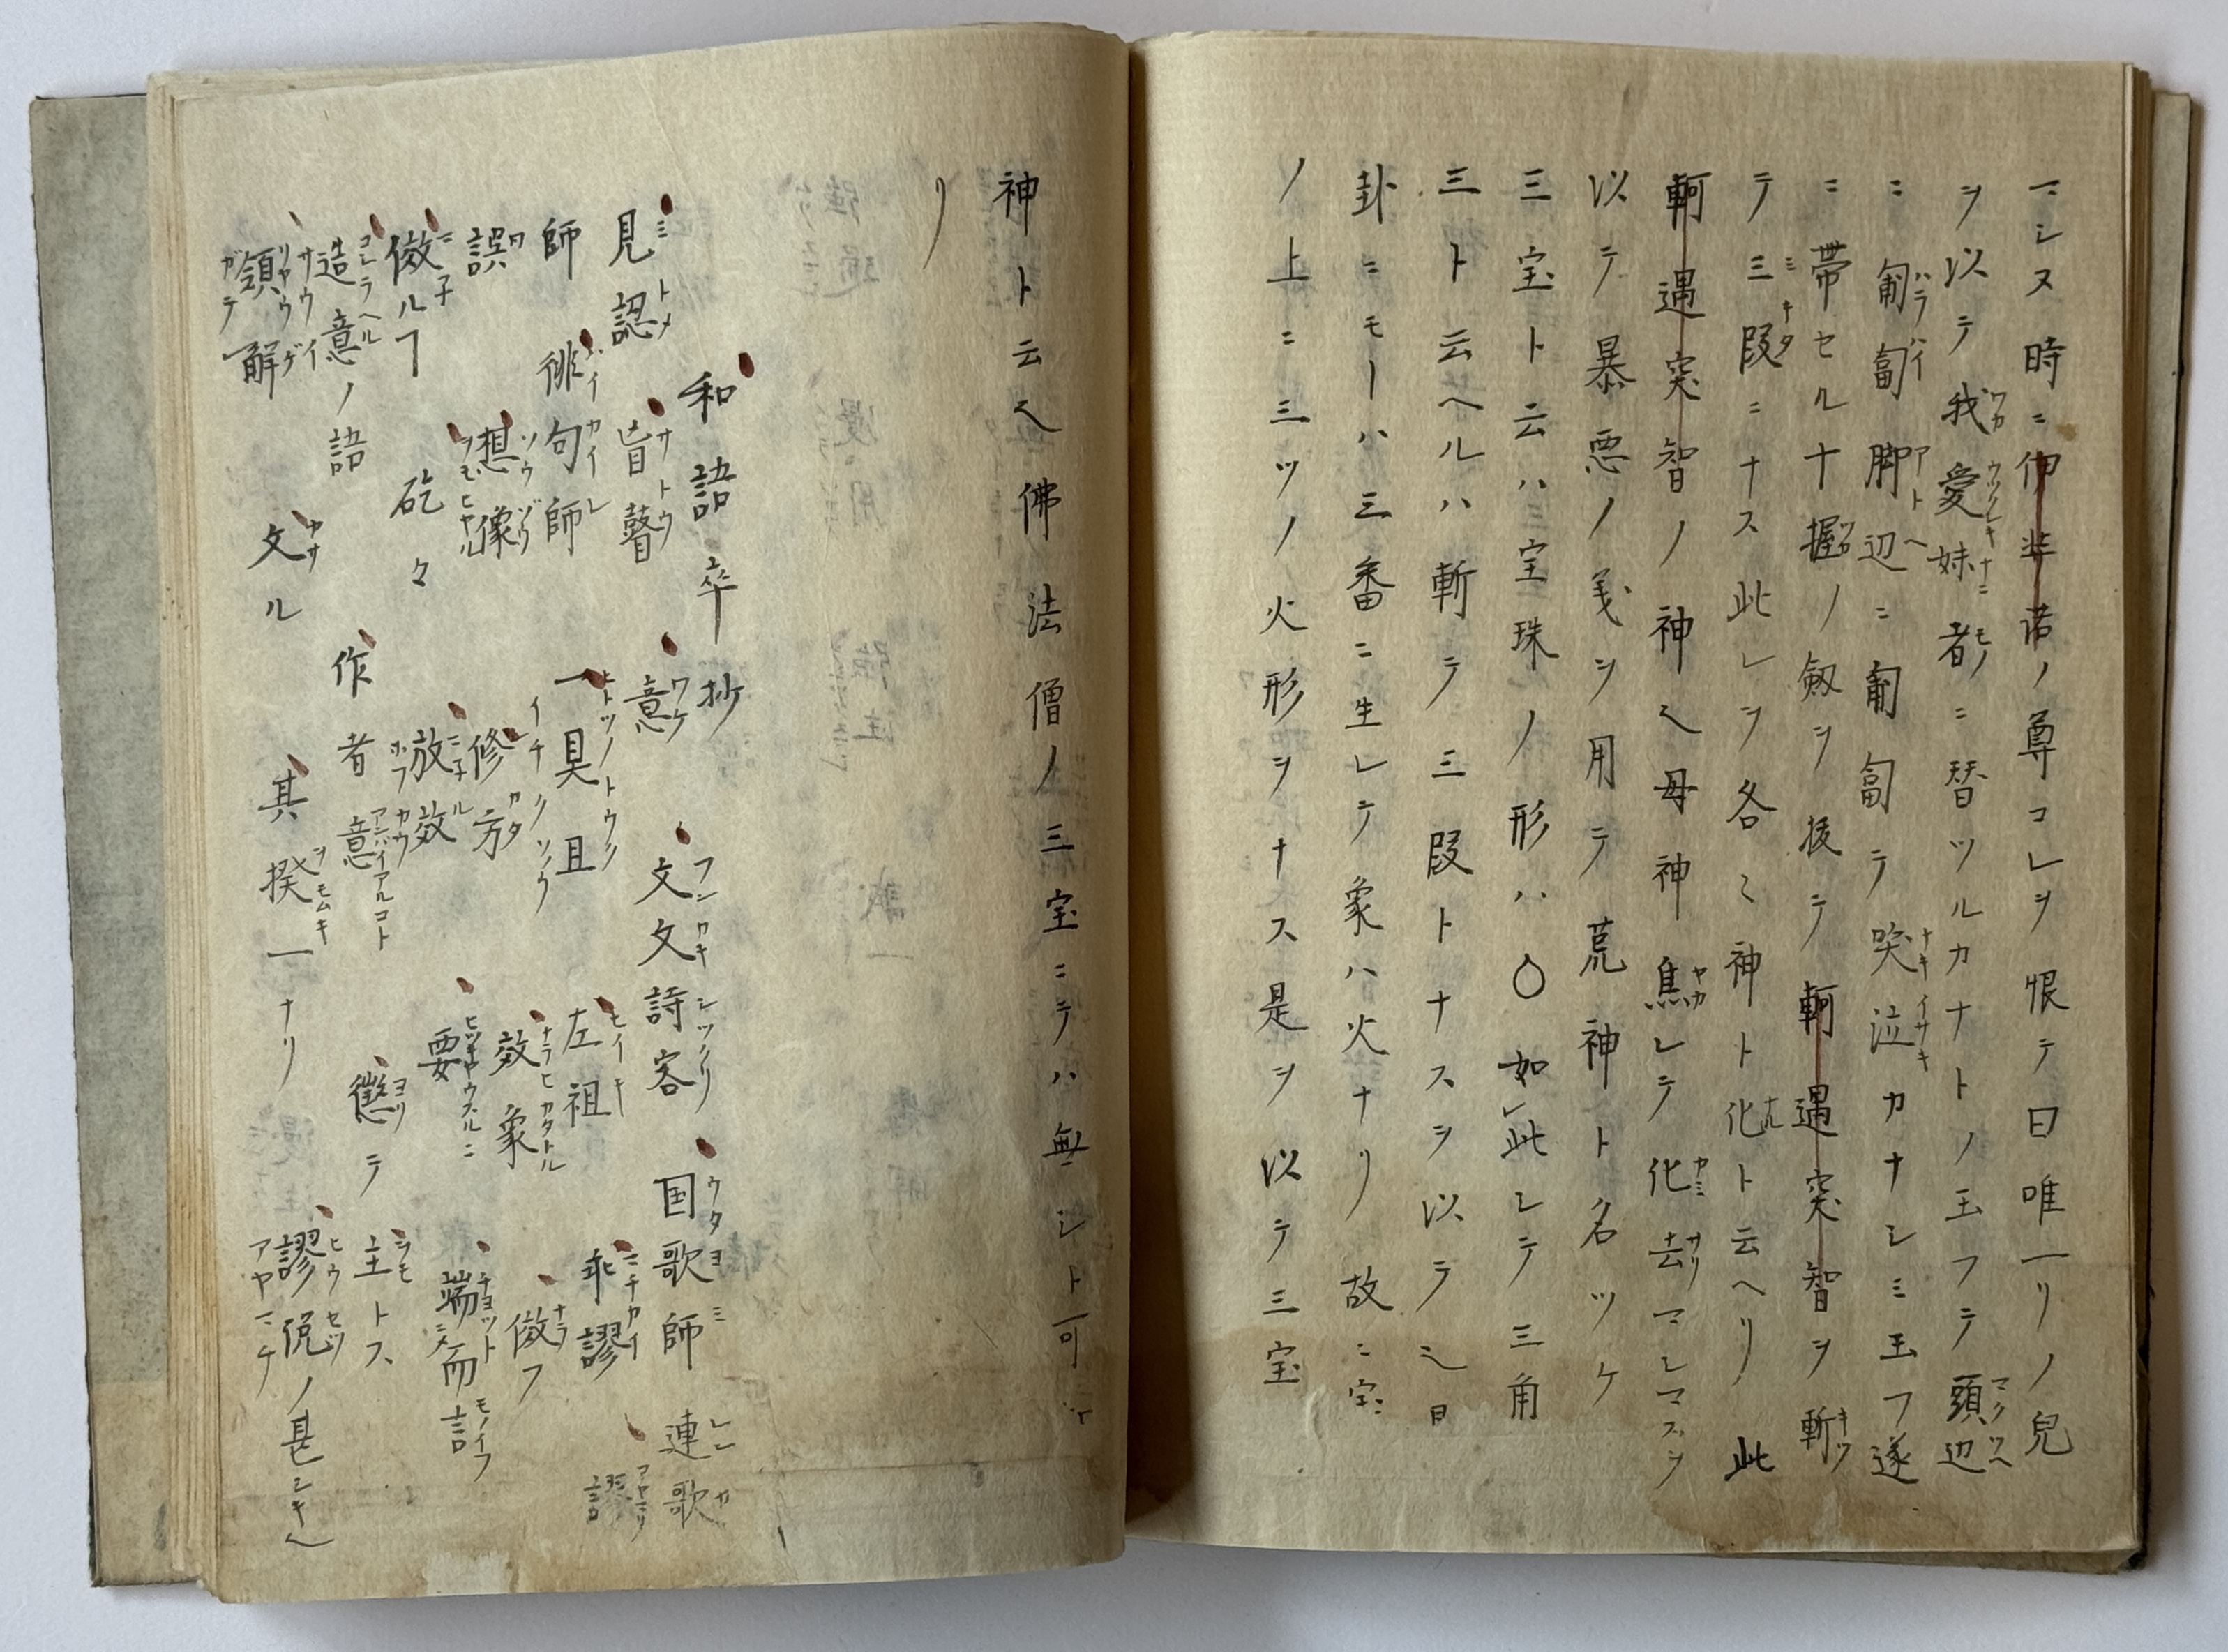 マシヌ時ニ伊弉諾ノ尊コレヲ恨テ曰唯一リノ兒
ヲ以テ我愛妹者ニ替ツルカナトノ玉フテ頭辺
ニ匍匐脚辺ニ匍匐テ哭泣カナシミ玉フ遂
ニ帯セル十握ノ劔ヲ抜テ軻遇突智ヲ斬
テ三段ニナス此レヲ各〻神ト化ト云ヘリ此
軻遇突智ノ神ヘ母神焦レテ化去マシマスヲ
以テ暴悪ノ義ヲ用テ荒神ト名ツケ
三宝ト云ハ三宝珠ノ形ハ〇如レ此シテ三角
三ト云ヘルハ斬テ三段トナスヲ以テ
卦ニモーハ三番ニ生レテ象ハ火ナリ故ニ宝
ノ上ニ三ツノ火形ヲナス是ヲ以テ三宝
神ト云ヘ佛法僧ノ三宝ニテハ無シト可
リ
和語卒抄
見認 盲瞽 意 文文詩客 国歌師 連歌
師 俳句師 一具且 左祖 乖謬 謬
誤 想像 修方 效象 倣フ
倣ルフ 矻々 放效 要 端而言
造意ノ語 作者意 懲テ 主トス
領解 文ル 其揆一ナリ 謬侻ノ甚シキヘ